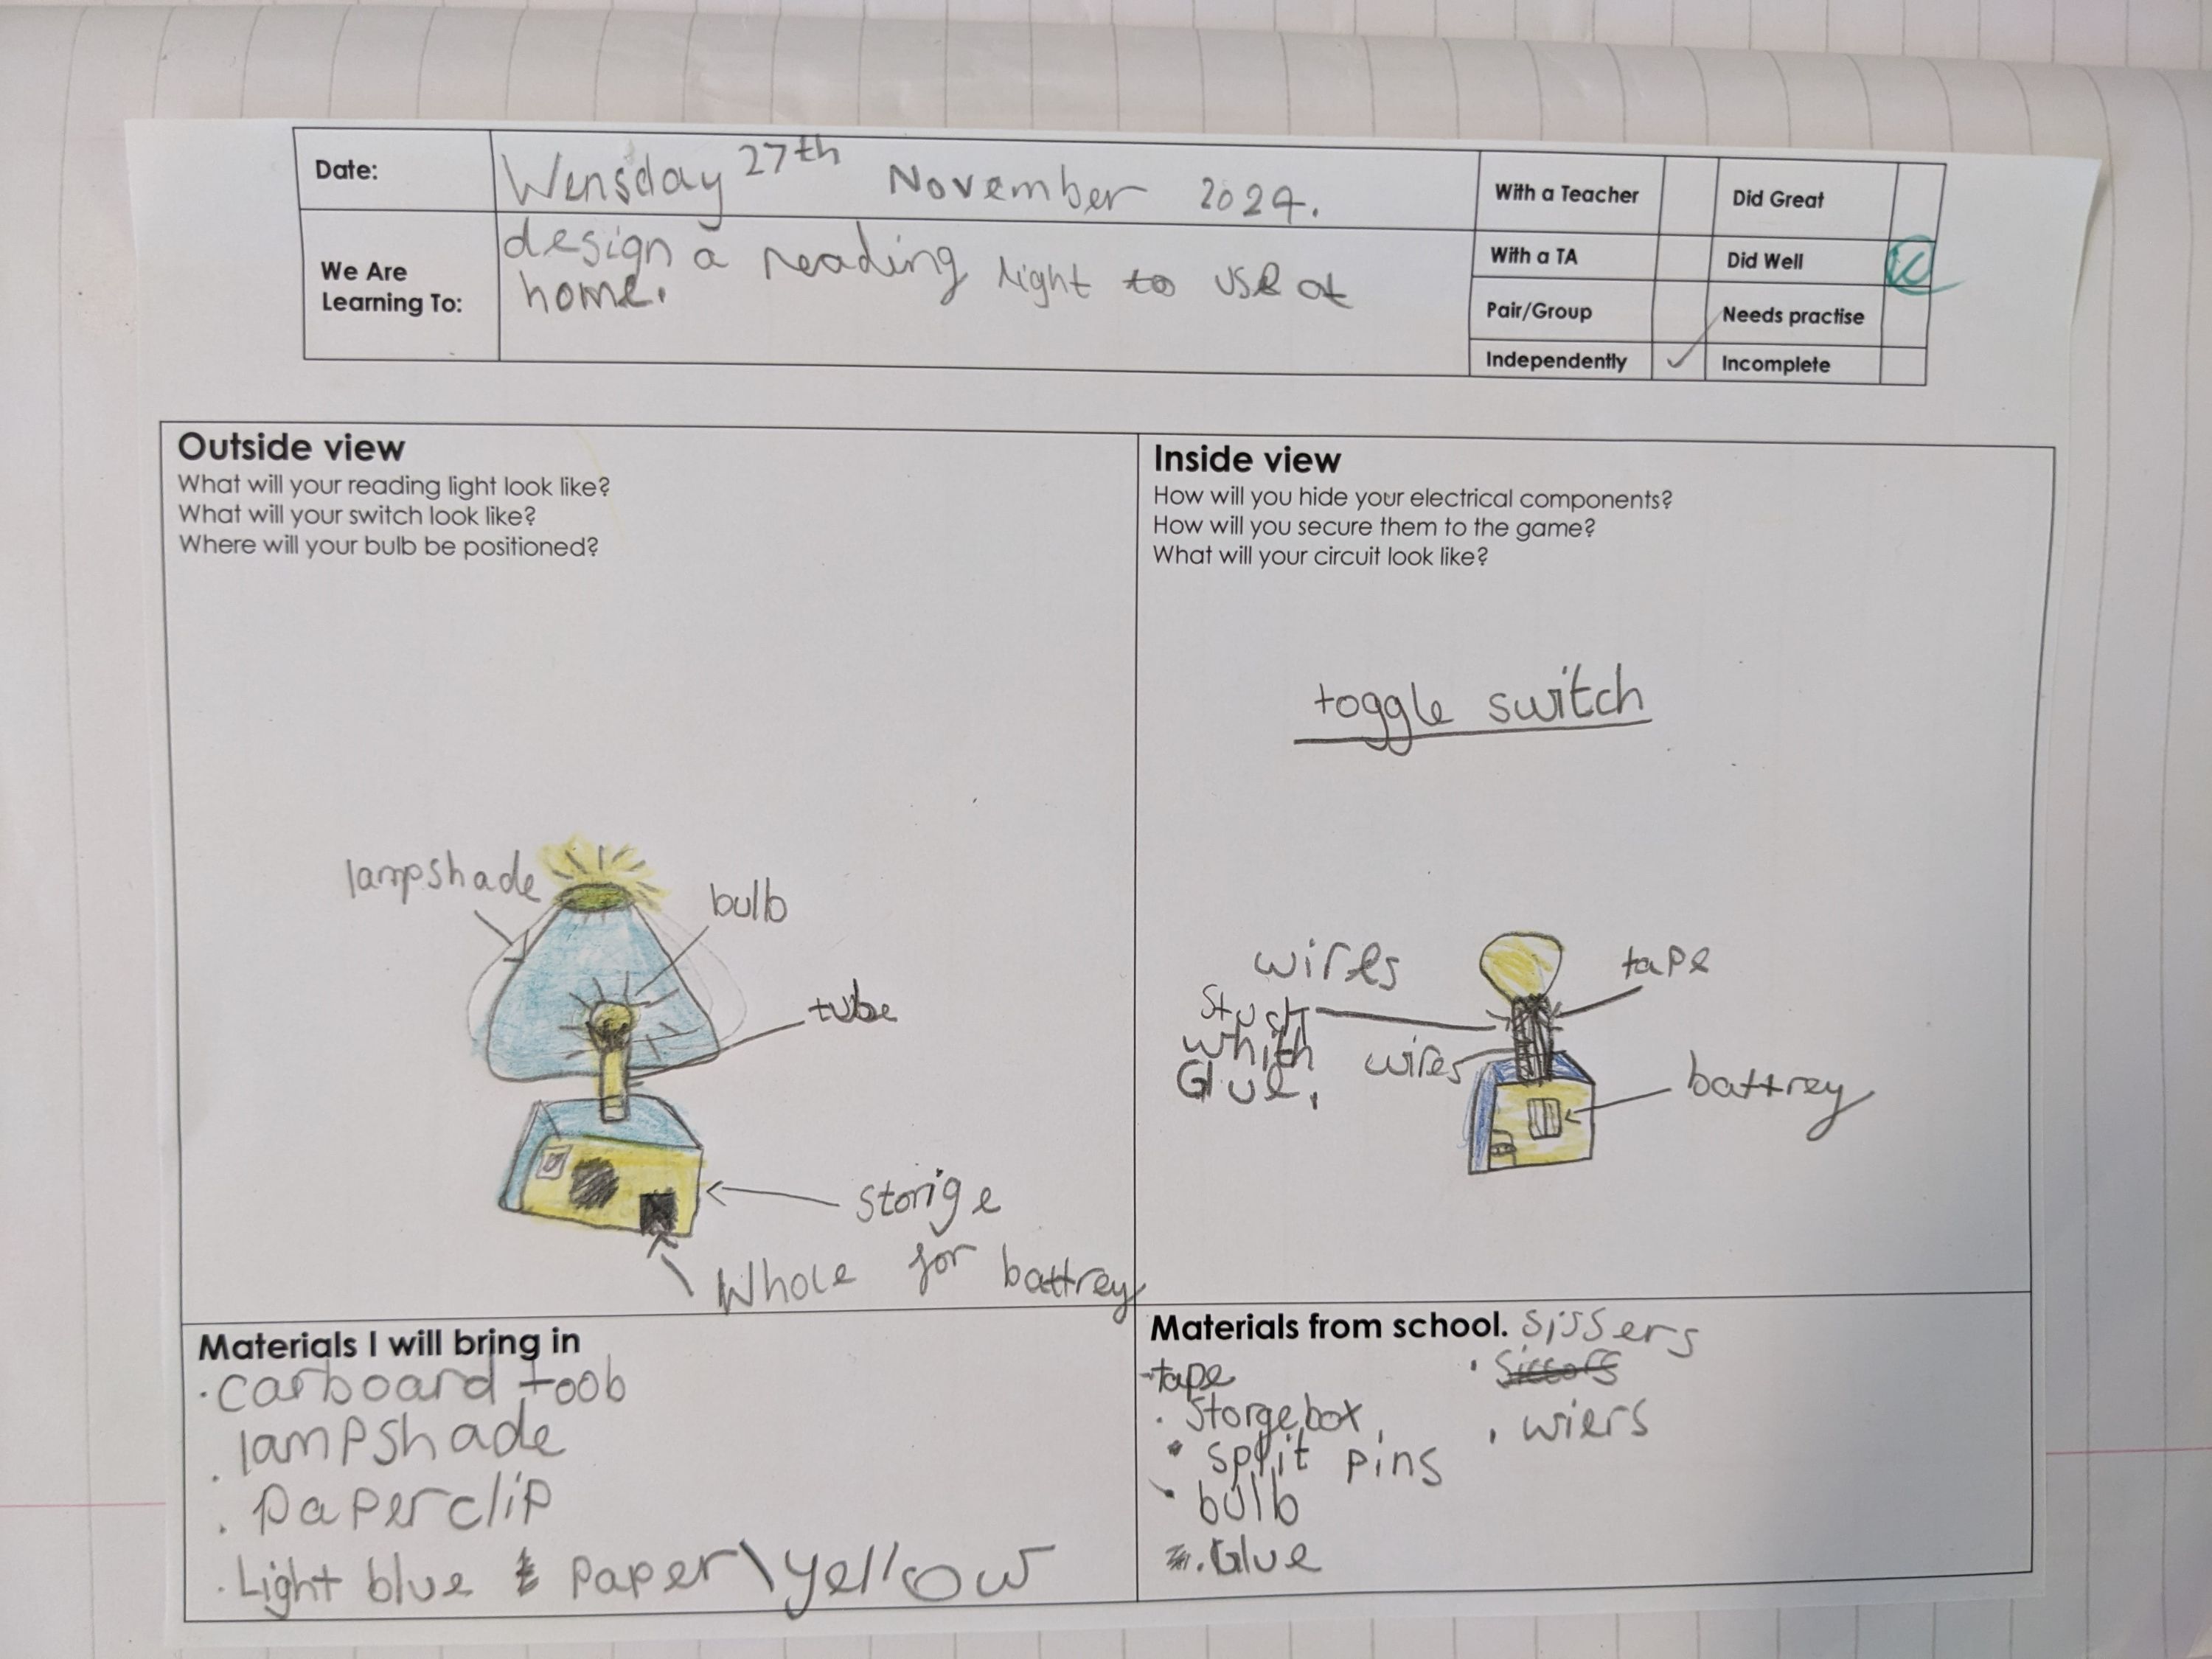 Date:
Wensday 27th November 2024.
We Are
Learning To:
design a reading light to use at
home.
With a Teacher
Did Great
With a TA
Did Well
Pair/Group
Needs practise
Independently
Incomplete
Outside view
What will your reading light look like?
What will your switch look like?
Where will your bulb be positioned?
lampshade
bulb
tube
storige
Whole for battrey
Inside view
How will you hide your electrical components?
How will you secure them to the game?
What will your circuit look like?
toggle switch
wires
stuck
whith
Glue.
tape
wires
battrey
Materials I will bring in
carboard toob
lampshade
paperclip
Light blue paper\yellow
Materials from school.
tape
storgebox
split pins
bulb
Glue
sissers
wiers